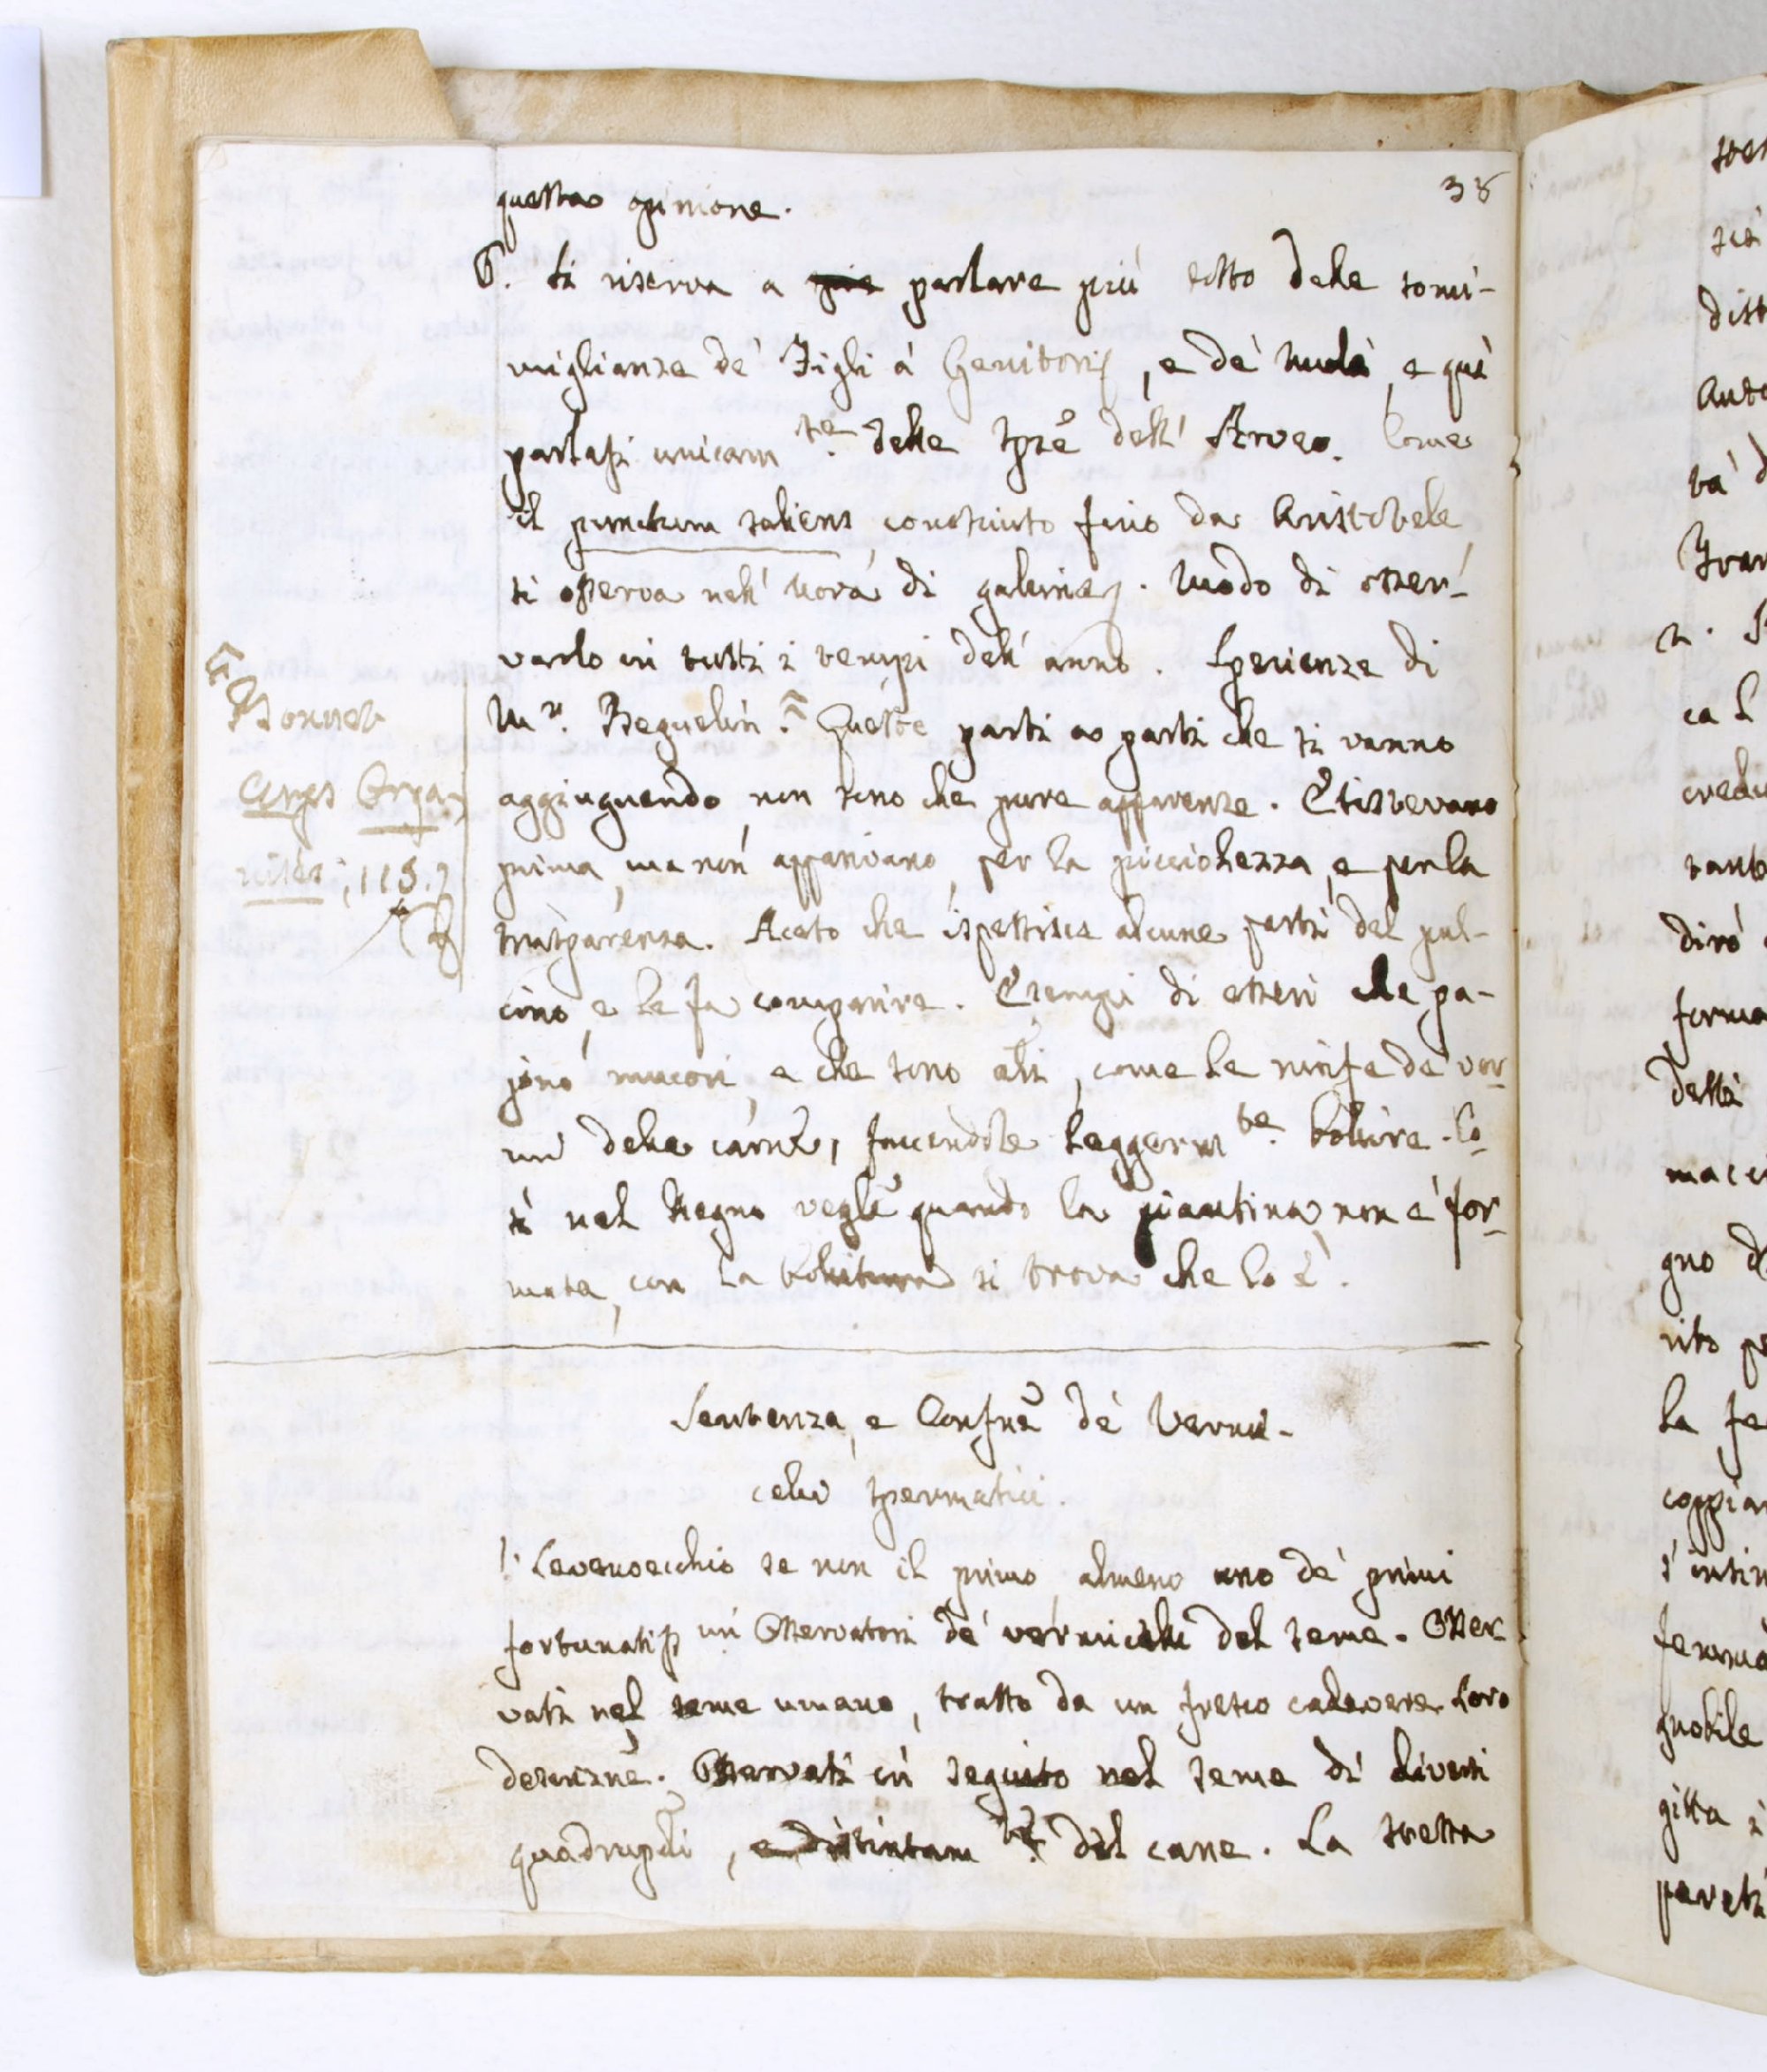 38
questa opinione.
6. Si riserva a parlare più sotto delle somi-
miglianze de' Figli a' Genitori, e de' Muli, e quì
parlasi unicam.te delle spze dell' Arveo. Come
il punctum saliens conosciuto fino da Aristotele
si osserva nell' uova di gallina. Modo di osser-
varlo in tutti i tempi dell' anno. Sperienze di
Mr. Beguelin. Queste parti a parti che si vanno
aggiugnendo non sono che pure apparenze. Esistevano
prima, ma non apparivano per la picciolezza, e per la
trasparenza. Aceto che ispessisce alcune parti del pul-
cino, e le fa comparire. Esempi di esseri che pa-
jono mucori, e che sono altri, come le ninfe de' ver-
mi della carne, facendole leggerm.te bollire. Co-
sì nel Regno vegle quando la piantina non è for-
mata, con la bollitura si trova che lo è.
Bonnet
Corps Orga-
nisés, 115.
Sentenza, e Confne de' Vermi-
celli spermatici.
1. Levenoecchio se non il primo, almeno uno de' primi
fortunatissimi Osservatori de' vermicelli del seme. Osser-
vati nel seme umano, tratto da un fresco cadavere. Loro
descrizne. Osservati in seguito nel seme di diversi
quadrupedi, e distintam.te del cane. La stessa